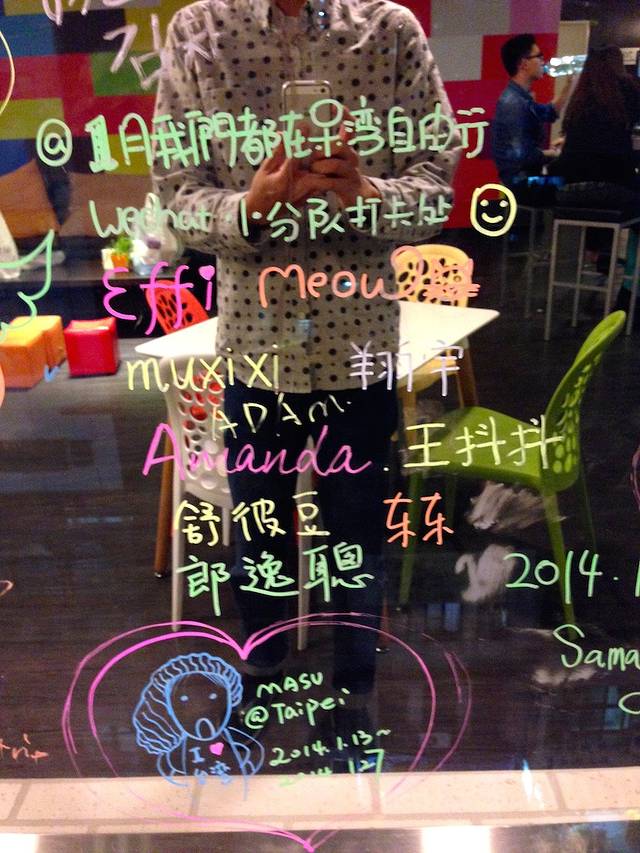 @1月我們都在呆灣自由行
wechat 小分队打卡处
Effi Meow
muxixi 翔宇
ADAM.
Amanda. 王抖抖
舒彼豆 东东
郎逸聰
2014.1
Sama
MASU
@Taipei
2014.1.13~
I ♥
台湾